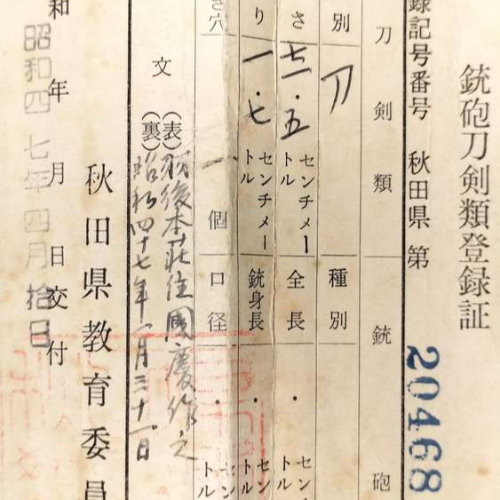 銃砲刀剣類登録証
録記号番号 秋田県 第 20468
刀剣類 銃砲
別 刀 種別
さ 七一・五 センチメートル 全長 ・ センチ
り 一・七 センチメートル 銃身長 ・ センチ
き穴 一個 口径 ・ センチ
文 (表) 羽後本荘住國慶作之
(裏) 昭和四十七年二月三十一日
秋田県教育委員
和 年 月 日交付
昭和四七年四月拾日